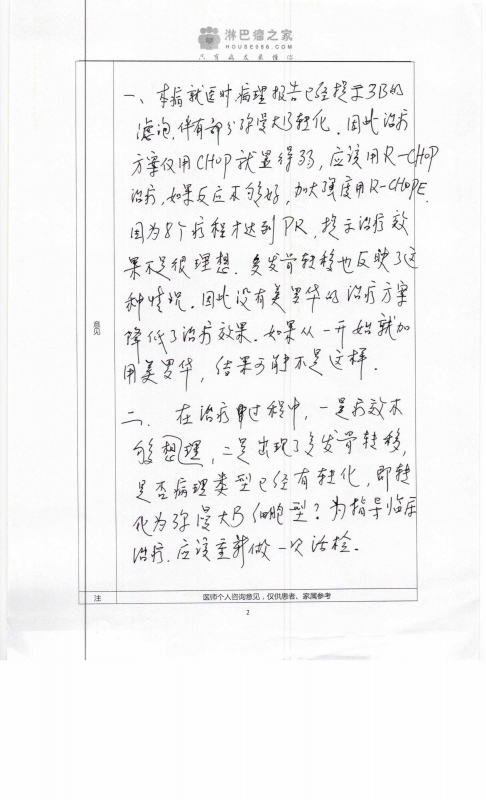 淋巴瘤之家
HOUSE086.COM
只有病友最懂你
一、本病就医时病理报告已经提示3B的
滤泡,伴有部分弥漫大B转化。因此治疗
方案仅用CHOP就显得弱,应该用R-CHOP
治疗,如果反应不够好,加大强度用R-CHOPE.
因为8个疗程才达到PR,提示治疗效
果不是很理想.多发骨转移也反映了这
种情况.因此没有美罗华的治疗方案
降低了治疗效果.如果从一开始就加
用美罗华,结果可能不是这样.
意见
二.在治疗过程中,一是疗效不
够想理,二是出现了多发骨转移,
是否病理类型已经有转化,即转
化为弥漫大B细胞型?为指导临床
治疗.应该重新做一次活检.
注 医师个人咨询意见,仅供患者、家属参考
2